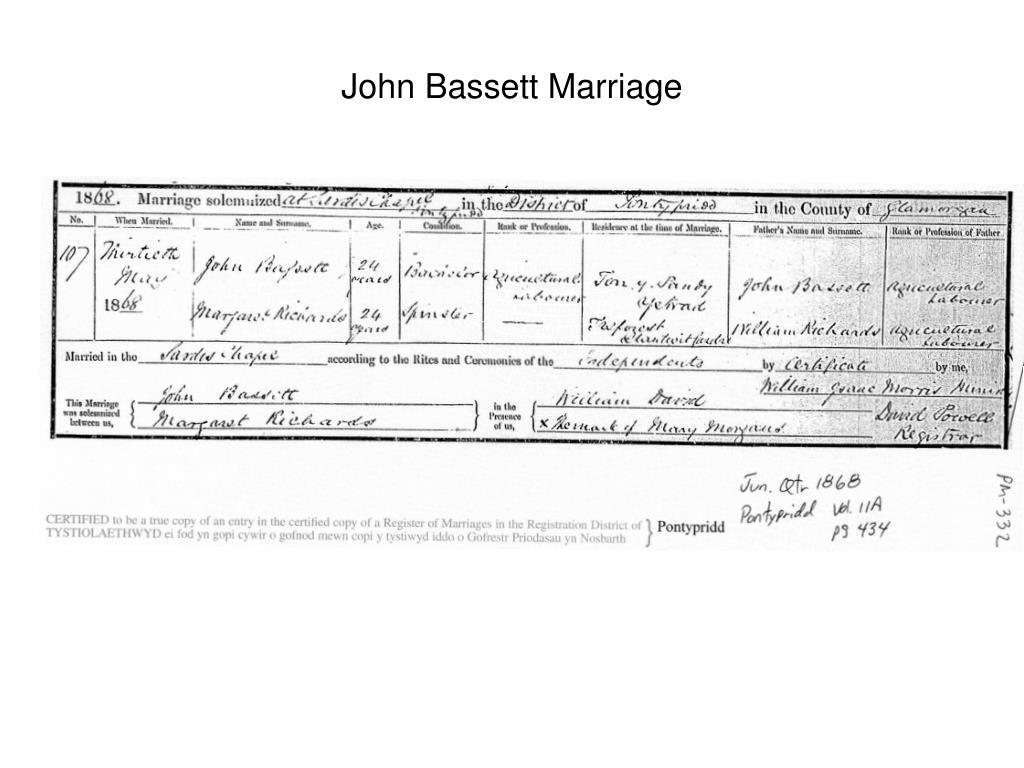 John Bassett Marriage
1868. Marriage solemnized at Sardis Chapel in the District of Pontypridd in the County of Glamorgan
Pontypridd
No. When Married. Name and Surname. Age. Condition. Rank or Profession. Residence at the time of Marriage. Father's Name and Surname. Rank or Profession of Father
107 Thirtieth May 1868 John Bassett 24 years Bachelor Agricultural Labourer Ton y Pandy Ystrad John Bassett Agricultural Labourer
Margaret Richards 24 years Spinster — Treforest Llantwit fardre William Richards Agricultural Labourer
Married in the Sardis Chapel according to the Rites and Ceremonies of the Independents by Certificate by me,
William Isaac Morris
This Marriage was solemnized between us, John Bassett in the Presence of us, William David David Powell
Margaret Richards x The mark of Mary Morgans Registrar
Jun. Qtr 1868
Pontypridd Vol. 11A
pg 434
PM-332
CERTIFIED to be a true copy of an entry in the certified copy of a Register of Marriages in the Registration District of } Pontypridd
TYSTIOLAETHWYD ei fod yn gopi cywir o gofnod mewn copi y tystiwyd iddo o Gofrestr Priodasau yn Nosbarth